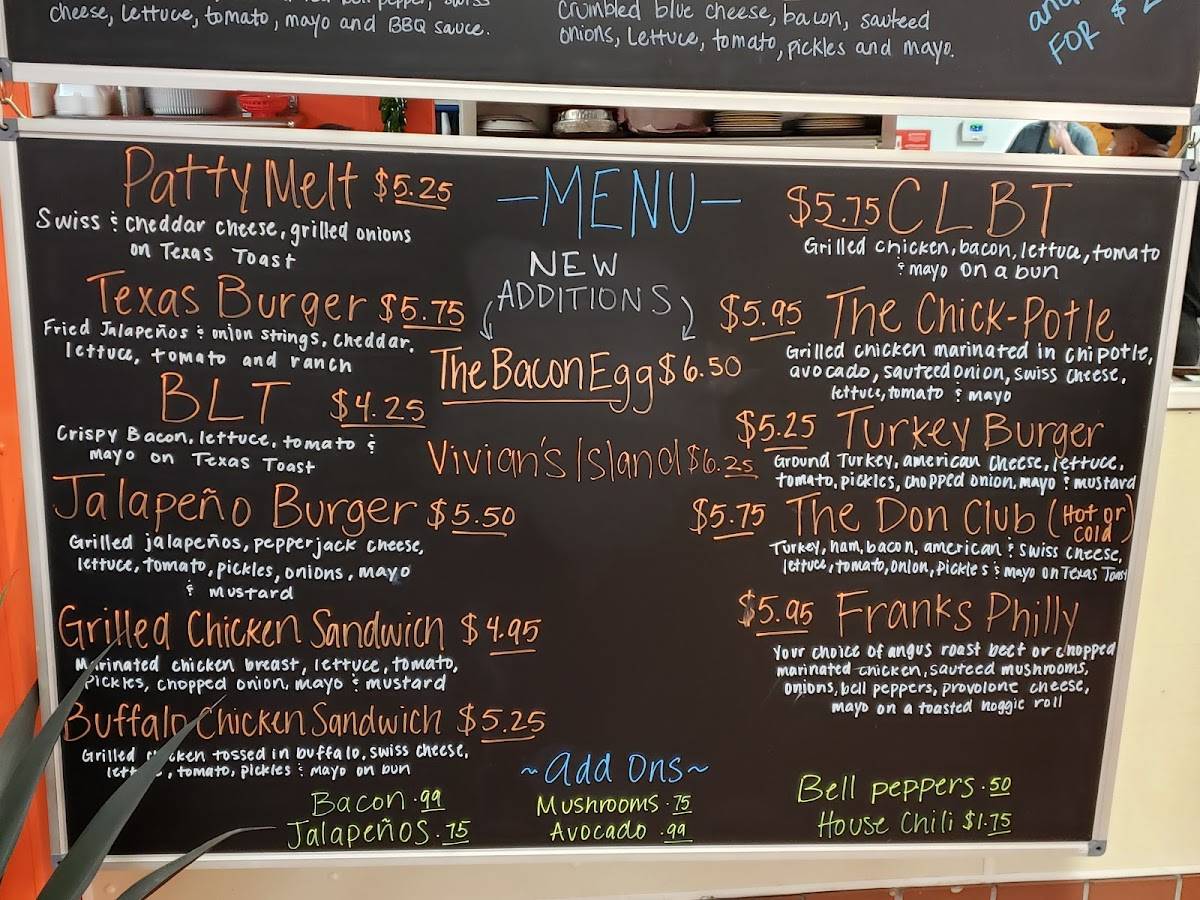 cheese, lettuce, tomato, mayo and BBQ sauce.
crumbled blue cheese, bacon, sauteed
onions, Lettuce, tomato, pickles and mayo.
FOR $
Patty Melt $5.25
Swiss & cheddar cheese, grilled onions
on Texas Toast
Texas Burger $5.75
Fried Jalapeños & onion strings, cheddar,
lettuce, tomato and ranch
BLT $4.25
Crispy Bacon, lettuce, tomato &
mayo on Texas Toast
Jalapeño Burger $5.50
Grilled jalapeños, pepperjack cheese,
lettuce, tomato, pickles, onions, mayo
& mustard
Grilled Chicken Sandwich $4.95
Marinated chicken breast, lettuce, tomato,
Pickles, chopped onion, mayo & mustard
Buffalo Chicken Sandwich $5.25
Grilled chicken tossed in buffalo, swiss cheese,
lettuce, tomato, pickles & mayo on bun
-MENU-
NEW
ADDITIONS
The Bacon Egg $6.50
Vivian's Island $6.25
$5.75 CLBT
Grilled chicken, bacon, lettuce, tomato
& mayo on a bun
$5.95 The Chick-Potle
Grilled chicken marinated in chipotle,
avocado, sauteed onion, swiss cheese,
lettuce, tomato & mayo
$5.25 Turkey Burger
Ground Turkey, american cheese, lettuce,
tomato, pickles, chopped onion, mayo & mustard
$5.75 The Don Club (Hot or
cold)
Turkey, ham, bacon, american & swiss cheese,
lettuce, tomato, onion, pickles & mayo on Texas Toast
$5.95 Franks Philly
Your choice of angus roast beef or chopped
marinated chicken, sauteed mushrooms,
onions, bell peppers, provolone cheese,
mayo on a toasted hoggie roll
~Add Ons~
Bacon .99
Jalapeños .75
Mushrooms .75
Avocado .99
Bell peppers .50
House Chili $1.75